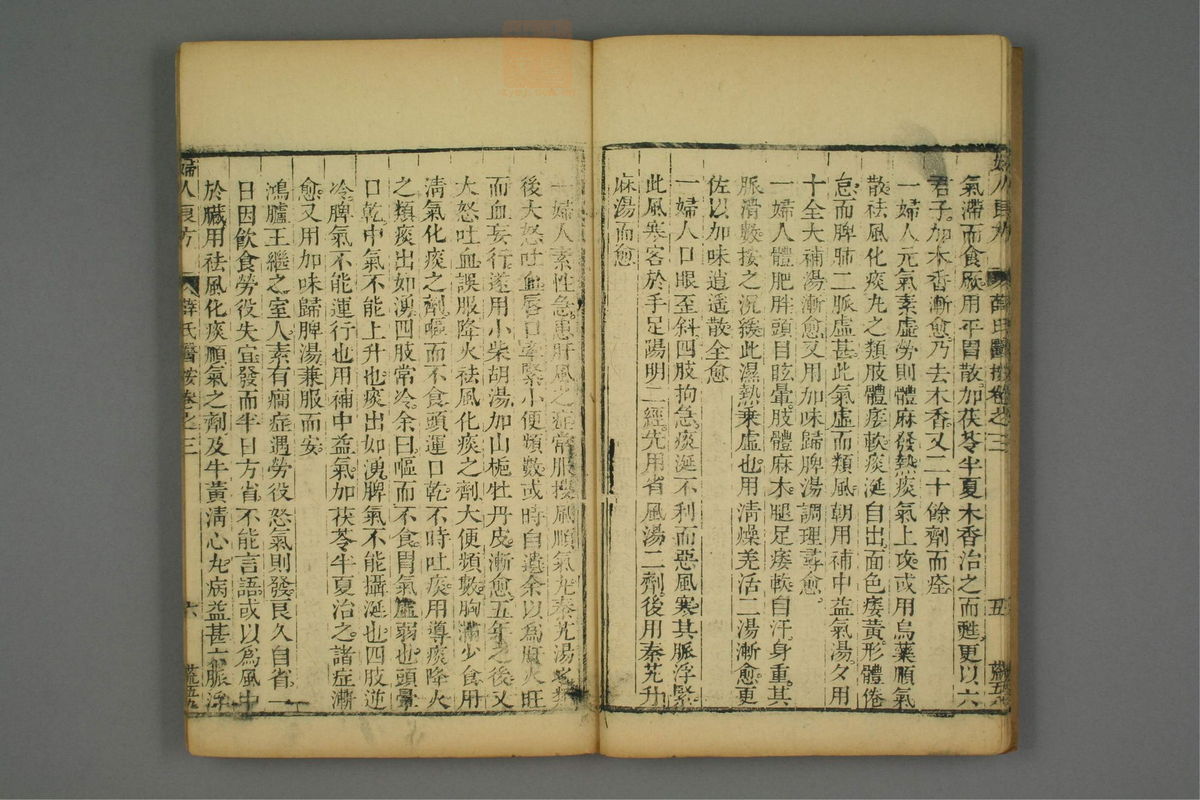 氣滯而食厥用平胃散加茯苓半夏木香治之而甦更以六
君子加木香漸愈乃去木香又二十餘劑而痊
一婦人元氣素虛勞則體麻發熱痰氣上攻或用烏藥順氣
散祛風化痰丸之類肢體痿軟痰涎自出面色痿黃形體倦
怠而脾肺二脈虛甚此氣虛而類風朝用補中益氣湯夕用
十全大補湯漸愈又用加味歸脾湯調理尋愈
一婦人體肥胖頭目眩暈肢體麻木腿足痿軟自汗身重其
脈滑數按之沉緩此濕熱乘虛也用清燥羌活二湯漸愈更
佐以加味逍遙散全愈
一婦人口眼歪斜四肢拘急痰涎不利而惡風寒其脈浮緊
此風寒客於手足陽明二經先用省風湯二劑後用秦艽升
麻湯而愈
婦人良方 薛氏醫按卷之三 五
一婦人素性急患肝風之症常服搜風順氣丸秦艽湯之類
後大怒吐血唇口牽緊小便頻數或時自遺余以為肝火旺
而血妄行遂用小柴胡湯加山梔牡丹皮漸愈五年之後又
大怒吐血誤服降火祛風化痰之劑大便頻數胸滿少食用
清氣化痰之劑嘔而不食頭運口乾不時吐痰用導痰降火
之類痰出如湧四肢常冷余曰嘔而不食胃氣虛弱也頭暈
口乾中氣不能上升也痰出如湧脾氣不能攝涎也四肢逆
冷脾氣不能運行也用補中益氣加茯苓半夏治之諸症漸
愈又用加味歸脾湯兼服而安
鴻臚王繼之室人素有癇症遇勞役怒氣則發良久自省一
日因飲食勞役失宜發而半日方省不能言語或以為風中
於臟用祛風化痰順氣之劑及牛黃清心丸病益甚六脈浮
婦人良方 薛氏醫按卷之三 六